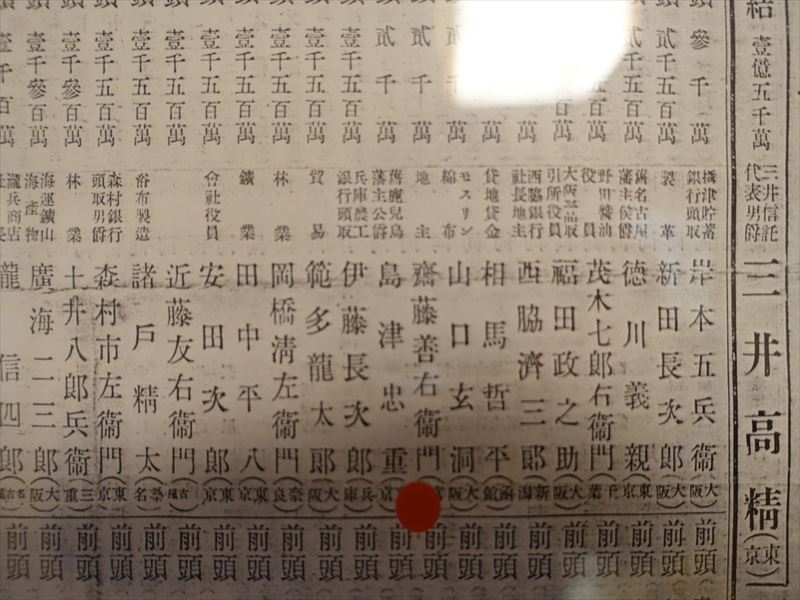 結 壹億五千萬 三井信託代表男爵 三井高精（東京）
頭 參千萬 攝津貯蓄銀行頭取 岸本五兵衞（大阪）
貳千五百萬 製革 新田長次郎（大阪）
貳千五百萬 舊名古屋藩主侯爵 德川義親（東京）
百萬 野田醬油役員 茂木七郎右衞門（千葉）
五百萬 大阪 取引所役員 福田政之助（大阪）
萬 西脇銀行社長地主 西脇濟三郎（新潟）
萬 貸地貸金 相馬哲平（函館）
萬 モスリン綿布 山口玄洞（大阪）
貳千萬 地主 齋藤善右衞門
貳千萬 舊鹿兒島藩主公爵 島津忠重 京）
壹千五百萬 兵庫農工銀行頭取 伊藤長次郎（兵庫）
壹千五百萬 貿易 範多龍太郎（大阪）
壹千五百萬 林業 岡橋淸左衞門（奈良）
壹千五百萬 鑛業 田中平八（東京）
壹千五百萬 會社役員 安田次郎（東京）
壹千五百萬 近藤友右衞門（名古屋）
壹千五百萬 浴布製造 諸戶精太（桑名）
壹千五百萬 森村銀行頭取男爵 森村市左衞門（東京）
壹千參百萬 林業 土井八郎兵衞（三重）
壹千參百萬 海運鑛山海產物 廣海二三郎（大阪）
壹千百萬 瀧兵商店社長 瀧信四郎（名古屋）
前頭 前頭 前頭 前頭 前頭 前頭 前頭 前頭 前頭 前頭 前頭 前頭 前頭 前頭 前頭 前頭 前頭 前頭 前頭 前頭